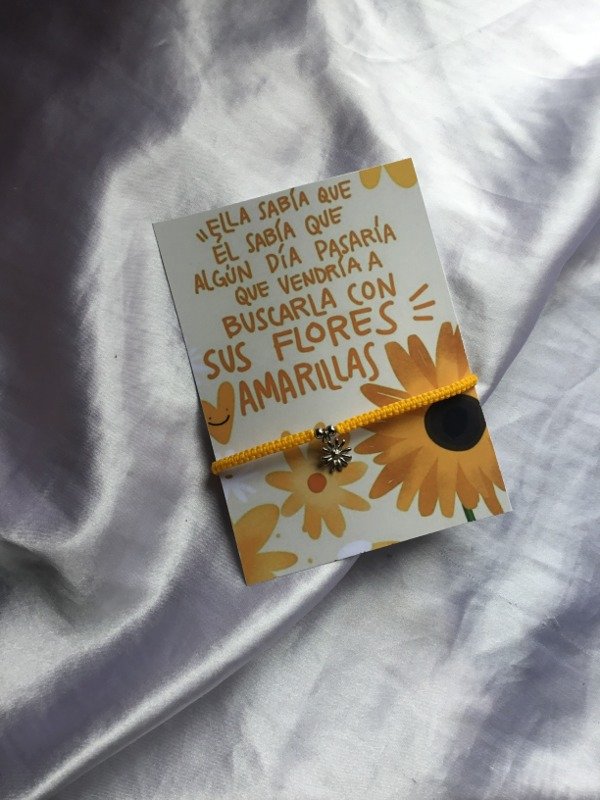 "ELLA SABÍA QUE
ÉL SABÍA QUE
ALGÚN DÍA PASARÍA
QUE VENDRÍA A
BUSCARLA CON
SUS FLORES
AMARILLAS